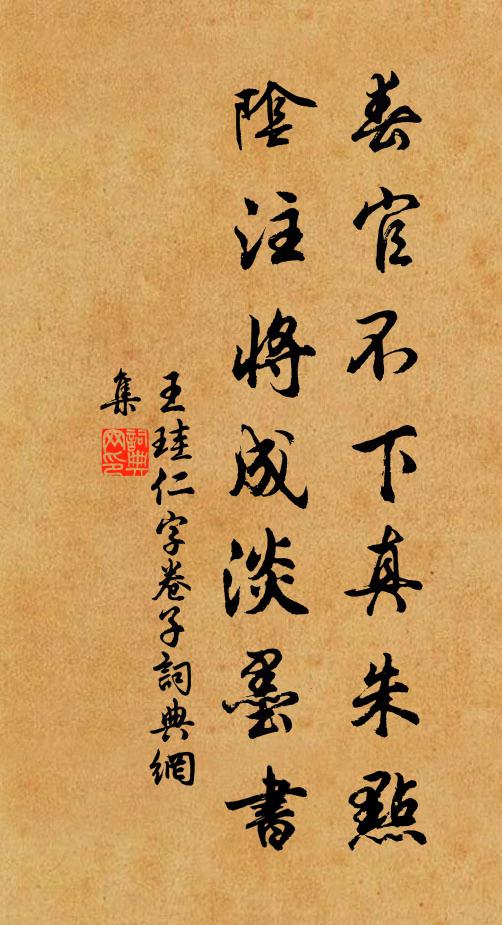 春官不下真朱點
陰注將成淡墨書
王珪仁字卷子詞典網
集
詞典網印